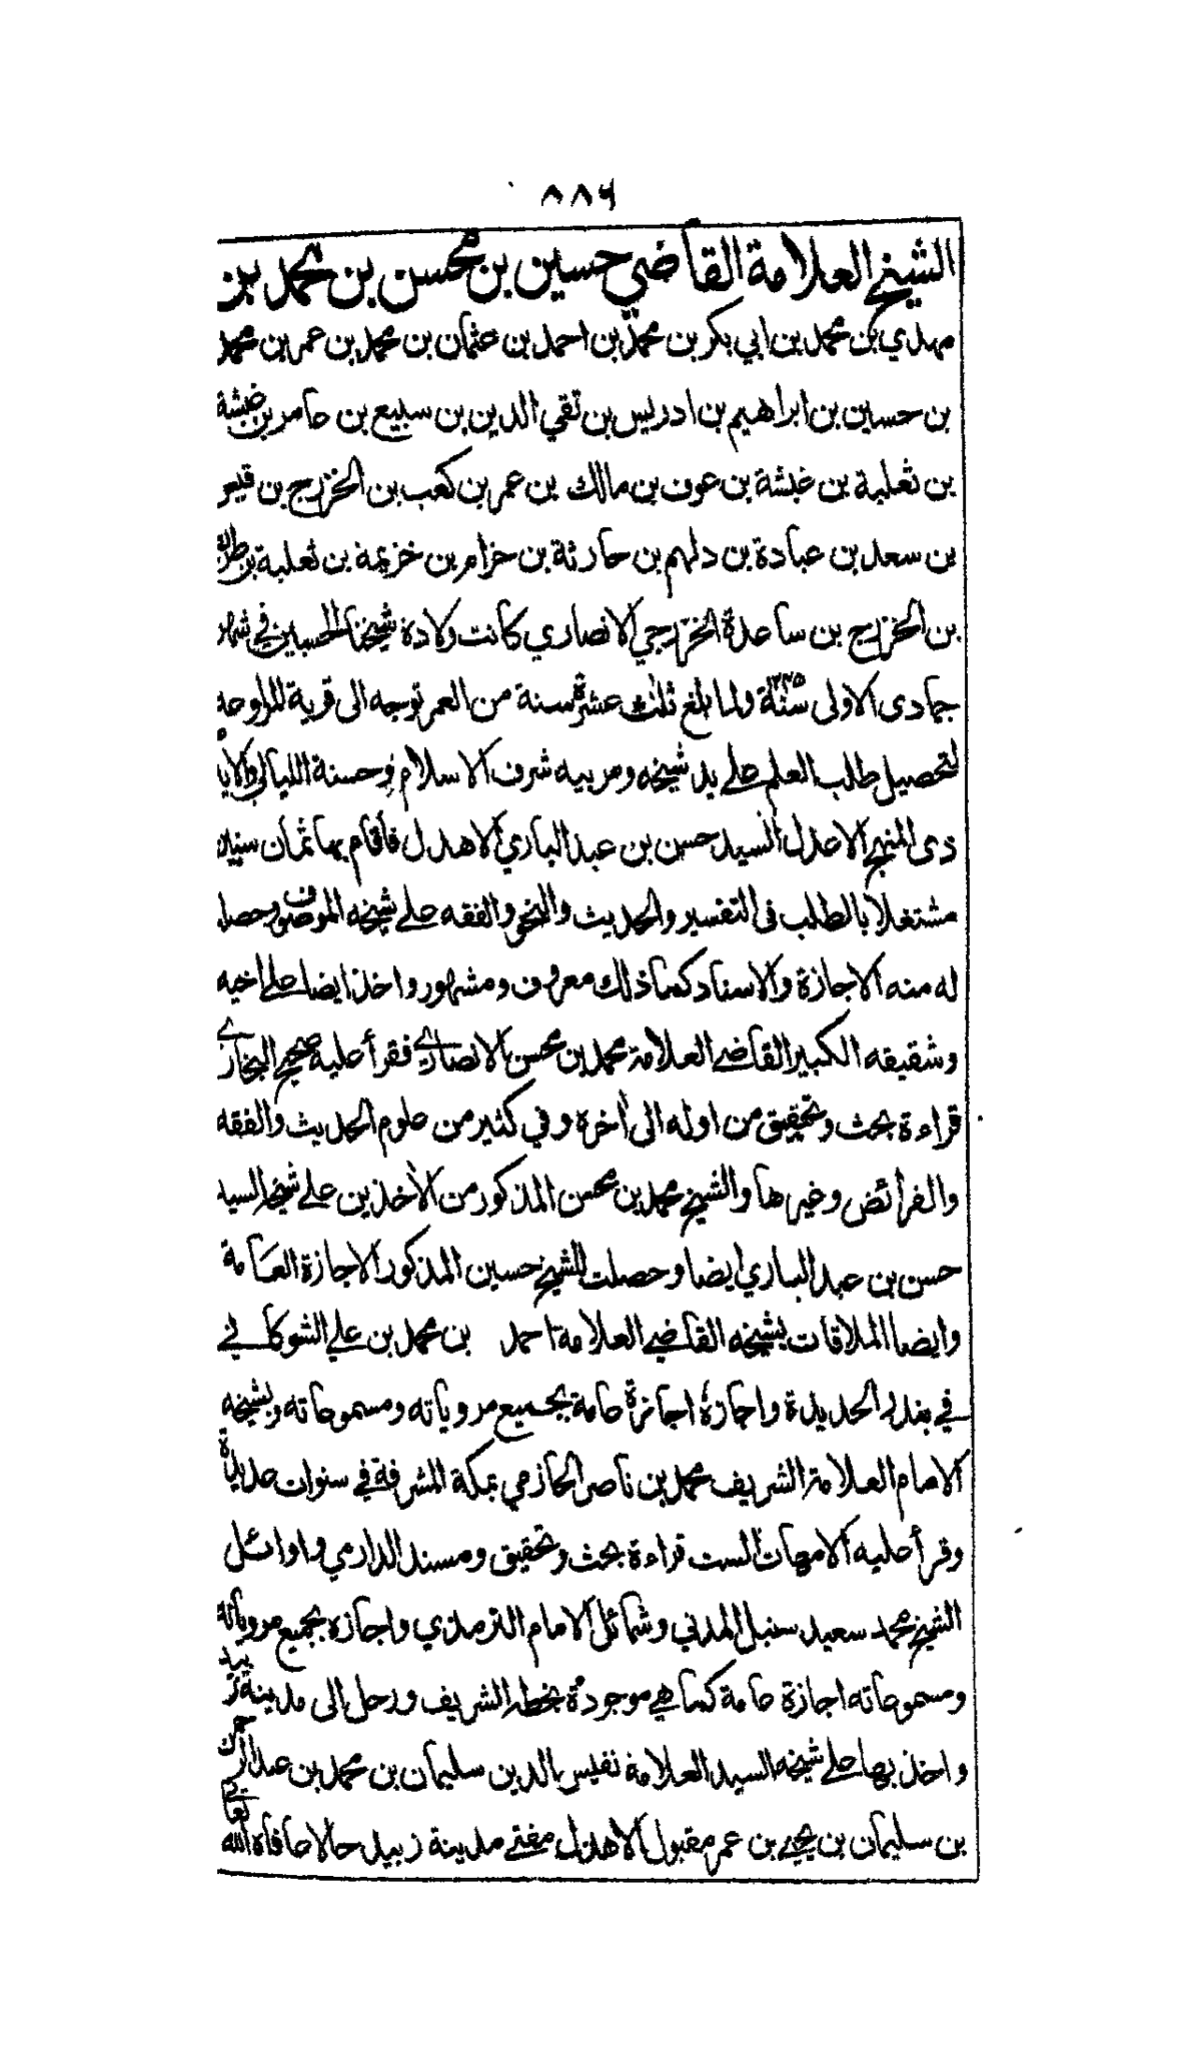 ٨٨٦
الشيخ العلامة القاضي حسين بن محسن بن محمد بن
مهدي بن محمد بن ابي بكر بن محمد بن احمد بن عثمان بن محمد بن عمر بن محمد
بن حسين بن ابراهيم بن ادريس بن تقي الدين بن سبيع بن عامر بن غبشة
بن ثعلبة بن غبشة بن عوف بن مالك بن عمر بن كعب بن الخزرج بن قيس
بن سعد بن عبادة بن دلهم بن حارثة بن حزام بن خزيمة بن ثعلبة بن طريف
بن الخزرج بن ساعدة الخزرجي الانصاري كانت ولادة شيخنا الحسين في شهر
جمادى الاولى سنة ١٢٤٥ ولما بلغ ثلث عشرة سنة من العمر توجه الى قرية المراوعة
لتحصيل طلب العلم على يد شيخه ومربيه شرف الاسلام وحسنة الليالي والايام
ذى المنهج الاعدل السيد حسن بن عبد الباري الاهدل فأقام بها ثمان سنين
مشتغلا بالطلب فى التفسير والحديث والنحو والفقه على شيخه الموصوف وحصل
له منه الاجازة والاسناد كما ذلك معروف ومشهور واخذ ايضا على اخيه
وشقيقه الكبير القاضى العلامة محمد بن محسن الانصارى فقرأ عليه صحيح البخارى
قراءة بحث وتحقيق من اوله الى أخره وفي كثير من علوم الحديث والفقه
والفرائض وغيرها والشيخ محمد بن محسن المذكور من الأخذين على شيخه السيد
حسن بن عبد الباري ايضا وحصلت للشيخ حسين المذكور الاجازة العامة
وايضا الملاقات بشيخه القاضى العلامة احمد بن محمد بن علي الشوكانى
في بندر الحديدة واجازه اجازة عامة بجميع مروياته ومسموعاته وبشيخه
الامام العلامة الشريف محمد بن ناصر الحازمي بمكة المشرفة في سنوات عديدة
وقرأ عليه الامهات الست قراءة بحث وتحقيق ومسند الدارمي واوائل
الشيخ محمد سعيد سنبل المدني وشمائل الامام الترمذي واجازه بجميع مروياته
ومسموعاته اجازة عامة كما هي موجودة بخطه الشريف ورحل الى مدينة زبيد
واخذ بها على شيخه السيد العلامة نفيس الدين سليمان بن محمد بن عبد الرحمن
بن سليمان بن يحيى بن عمر مقبول الاهدل مفتى مدينة زبيد حالا عافاه الله تعالى